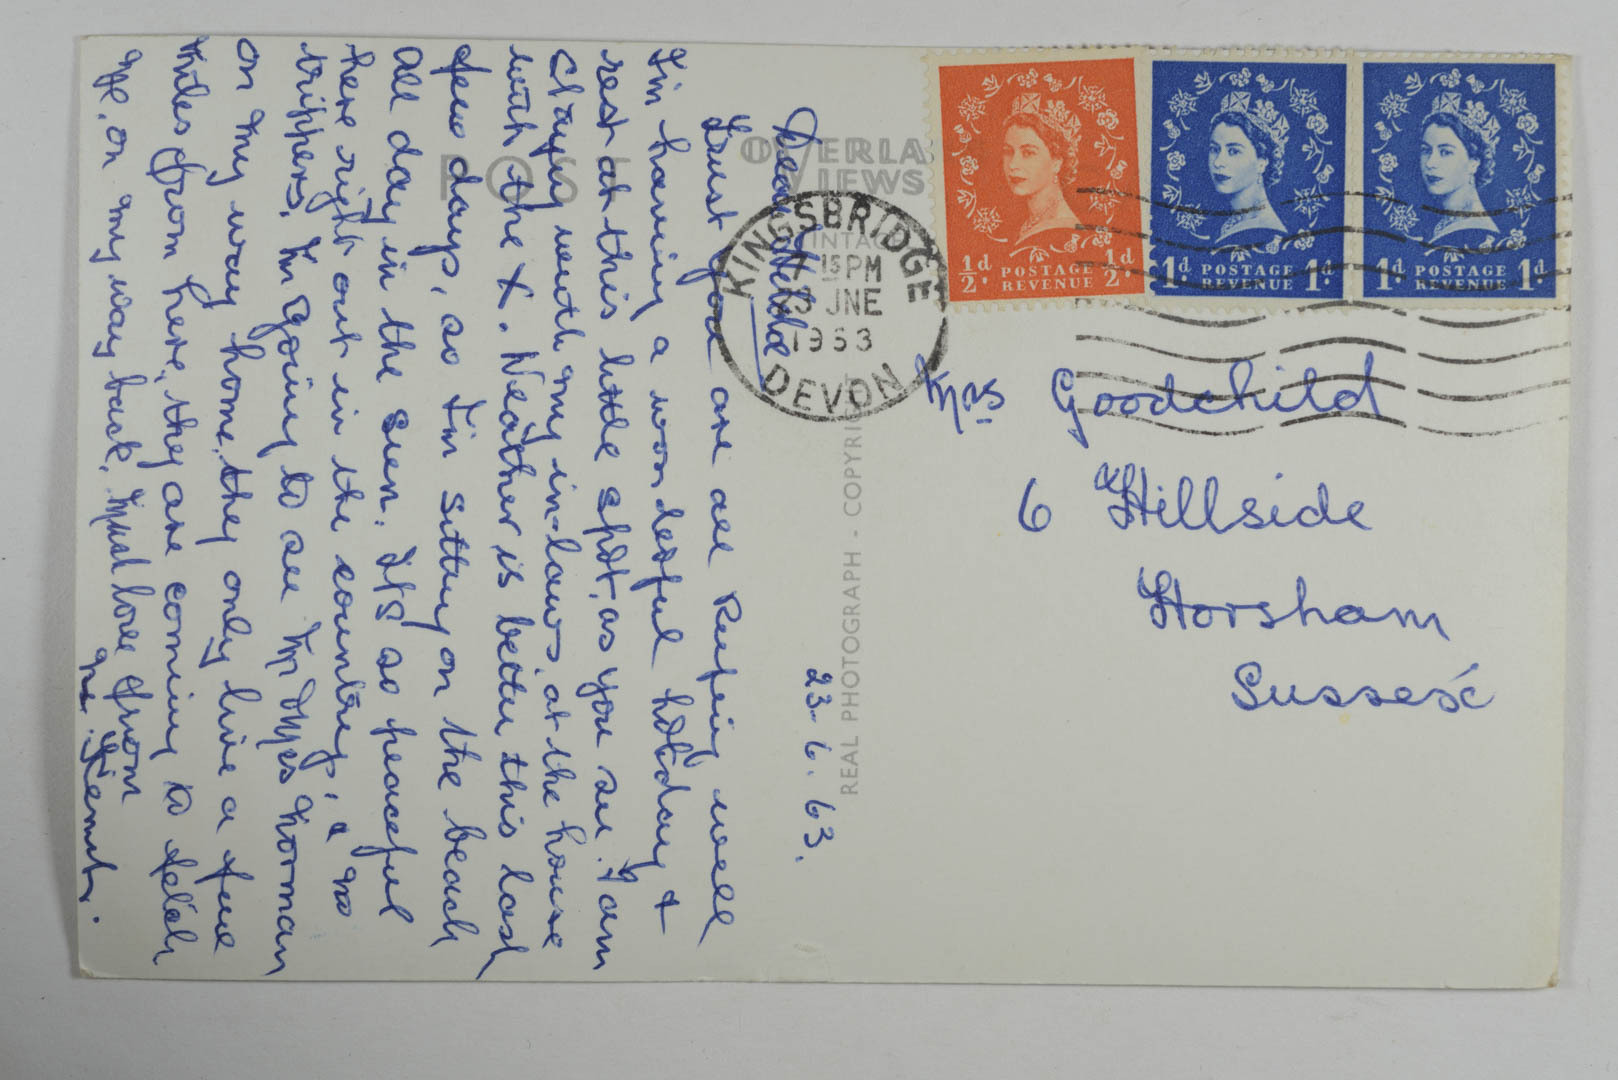 Dear Hilda
23-6.63.
Trust you are all keeping well
I'm having a wonderful holiday &
rest at this little spot, as you see. I am
staying with my in-laws, at the house
with the X. Weather is better this last
few days, so I'm sitting on the beach
all day in the sun. It's so peaceful
here right out in the country, & no
trippers. I'm going to see Mr & Mrs Norman
on my way home, they only live a few
miles from here, they are coming to fetch
me, on my way back. Much love from
Mrs.
Mrs Goodchild
6 Hillside
Horsham
Sussex
POS
OVERLA
VIEWS
REAL PHOTOGRAPH - COPYRIG
KINGSBRIDGE
15 PM
23 JNE
1963
DEVON
½d. POSTAGE ½d.
REVENUE
1d. POSTAGE 1d.
REVENUE
1d. POSTAGE 1d.
REVENUE